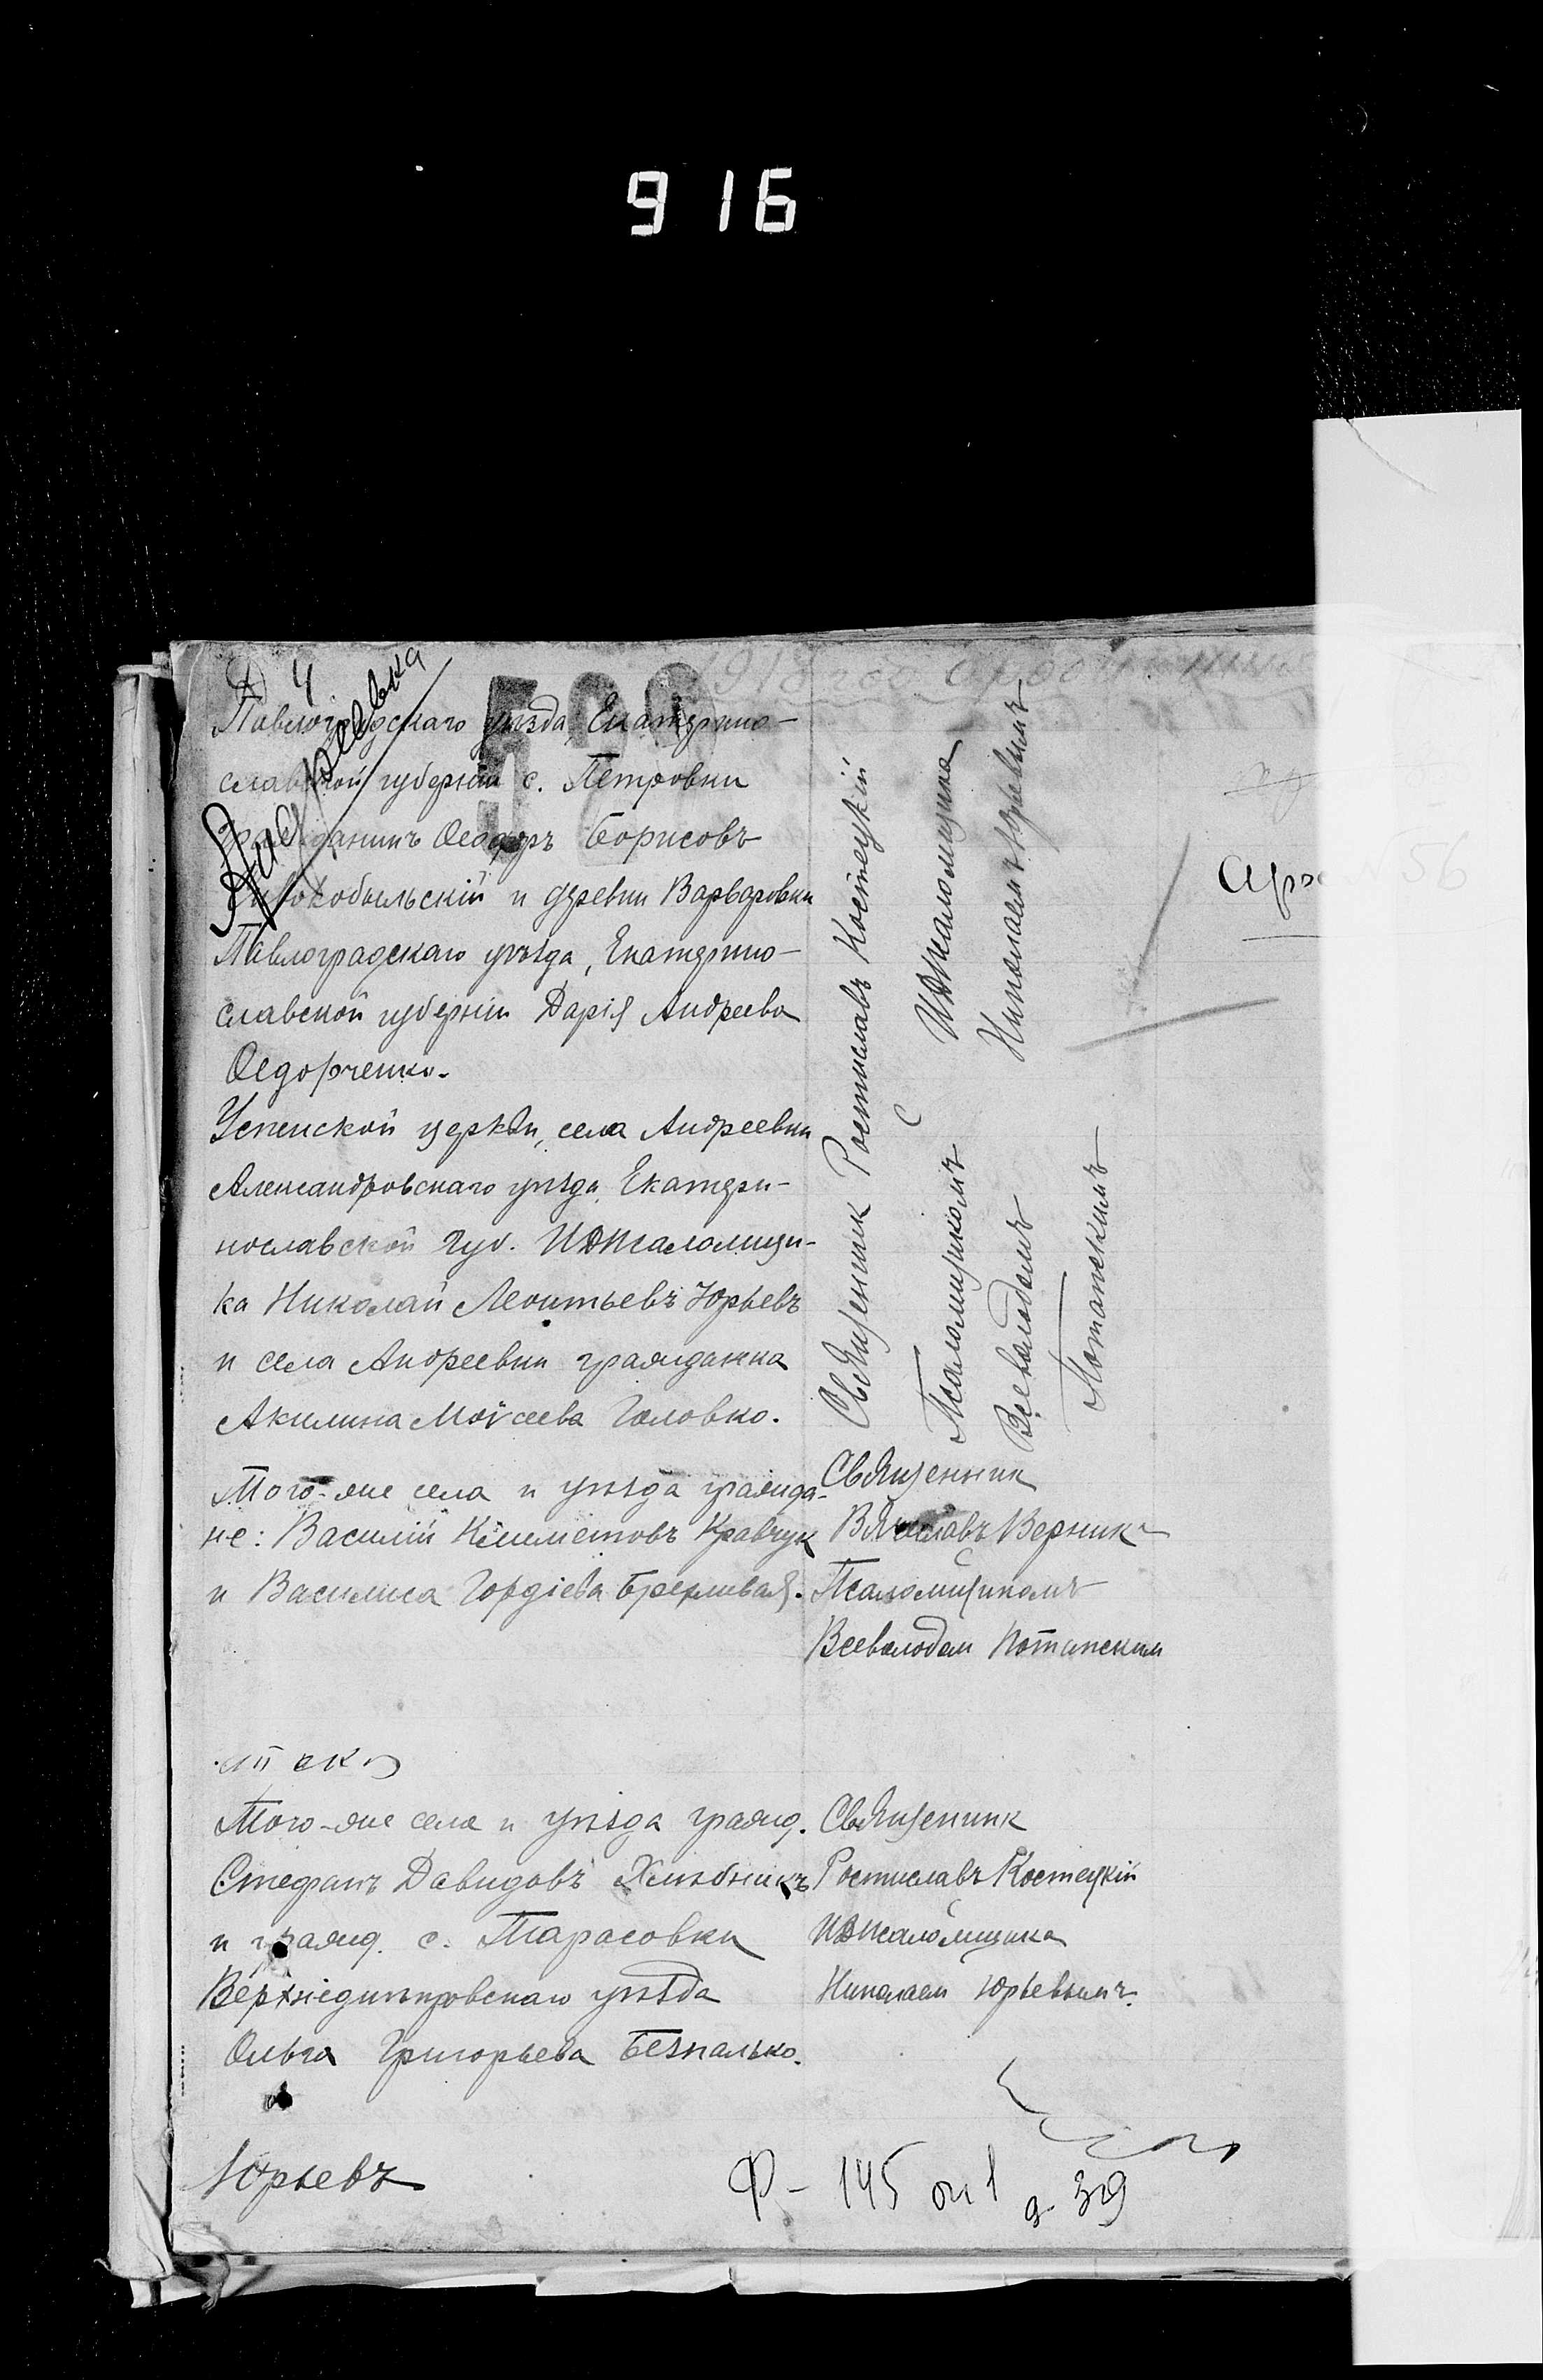 916
4
Андреевка
Павлоградскаго уѣзда, Екатерино-
славской губерніи с. Петровки
гражданинъ Ѳеодоръ Борисовъ
Сивокобыльскій и деревни Варваровки
Павлоградскаго уѣзда, Екатерино-
славской губерніи Дарія Андреева
Ѳедорченко.
Успенской церкви, села Андреевки
Александровскаго уѣзда, Екатери-
нославской губ. И.д. псаломщи-
ка Николай Леонтьевъ Юрьевъ
и села Андреевки гражданка
Акилина Моѵсеева Головко.
Того-же села и уѣзда гражда-
не: Василій Климетовъ Кравчук
и Василиса Гордіева Брехливая.
Того-же села и уѣзда гражд.
Стефанъ Давидовъ Хлѣбникъ
и гражд. с. Тарасовки
Верхнеднѣпровскаго уѣзда
Ольга Григорьева Безпалько.
Юрьевъ
Священник Ростиславъ Костецкій
С И.д. псаломщика
Николаемъ Юрьевымъ
Псаломщикомъ
Всеволодомъ
Потапскимъ
Священник
Вячеславъ Верник
Псаломщикомъ
Всеволодом Потапским
Священник
Ростиславъ Костецкій
И.д. псаломщика
Николаем Юрьевымъ.
Ф- 145 оп 1 д 39
56